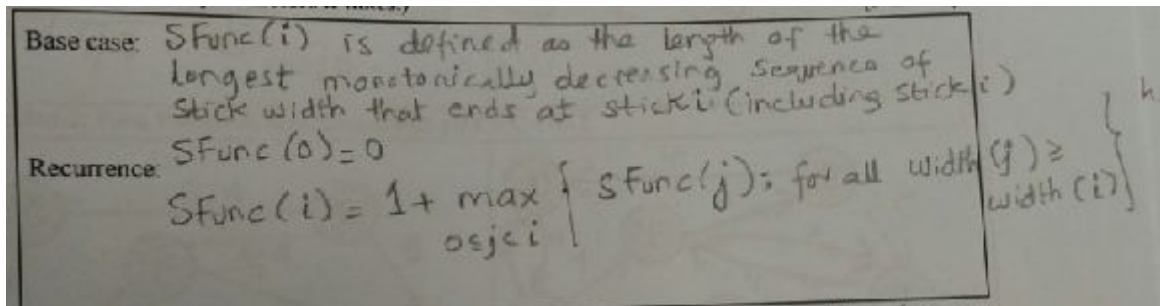 Base case: SFunc(i) is defined as the length of the
longest monotonically decreasing sequence of
stick width that ends at stick i (including stick i)
Recurrence: SFunc(0) = 0
SFunc(i) = 1 + max { SFunc(j): for all width(j) ≥
0≤j<i width(i) }